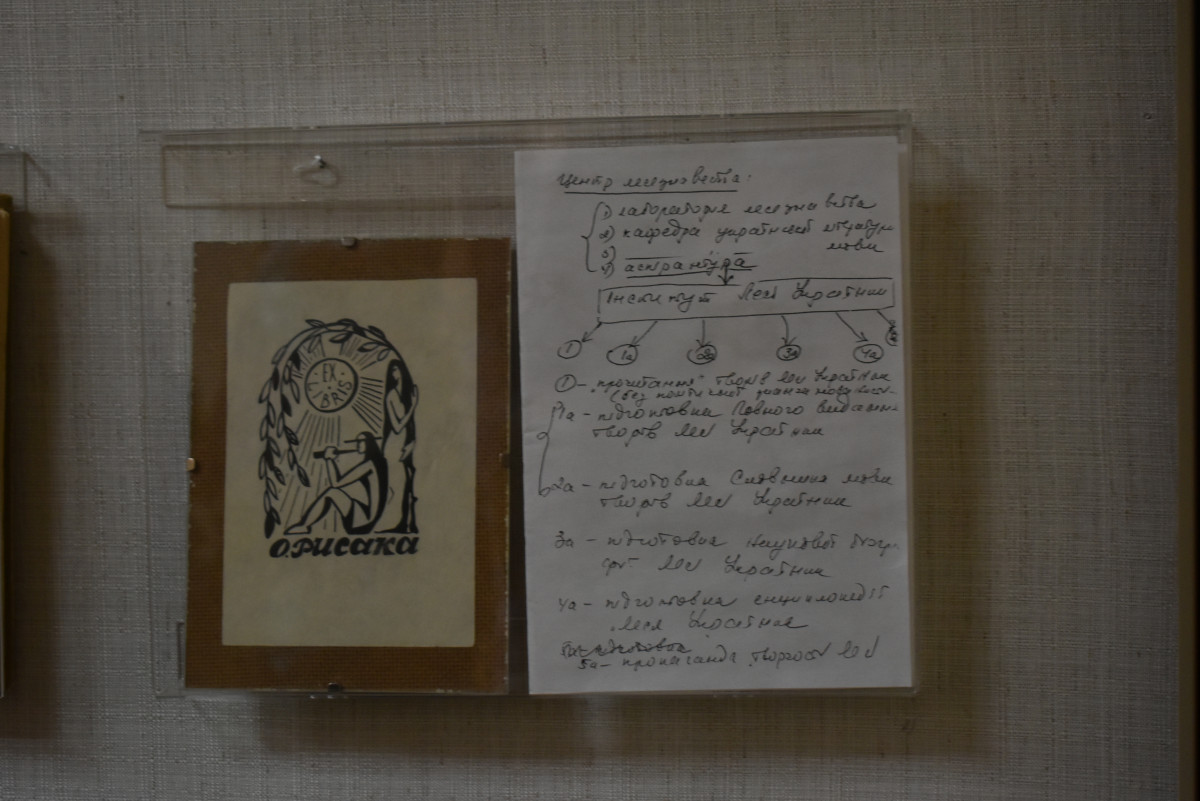 EX
LIBRIS
О. РИСАКА
Центр лесезнавства:
1) лабораторія лесезнавства
2) кафедра української літератури
3) мови
4) аспірантура
Інститут Лесі Українки
1 1а 2а 3а 4а
1 – "прочитання" творів Лесі Українки
(без
1а – підготовка Повного видання
творів Лесі Українки
2а – підготовка Словника мови
творів Лесі Українки
3а – підготовка наукової біогр
Лесі Українки
4а – підготовка енциклопедії
Леся Українка
5а – пропаганда творчості Лесі